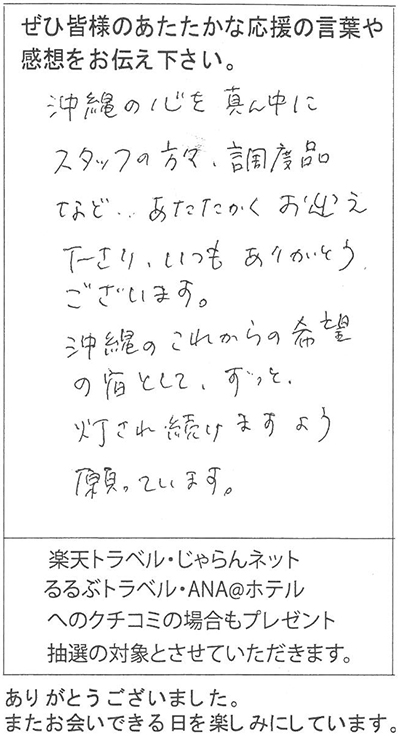 ぜひ皆様のあたたかな応援の言葉や
感想をお伝え下さい。
沖縄の心を真ん中に
スタッフの方々、調度品
など‥あたたかくお迎え
下さり、いつもありがとう
ございます。
沖縄のこれからの希望
の宿として、ずっと、
灯され続けますよう
願っています。
楽天トラベル・じゃらんネット
るるぶトラベル・ANA@ホテル
へのクチコミの場合もプレゼント
抽選の対象とさせていただきます。
ありがとうございました。
またお会いできる日を楽しみにしています。